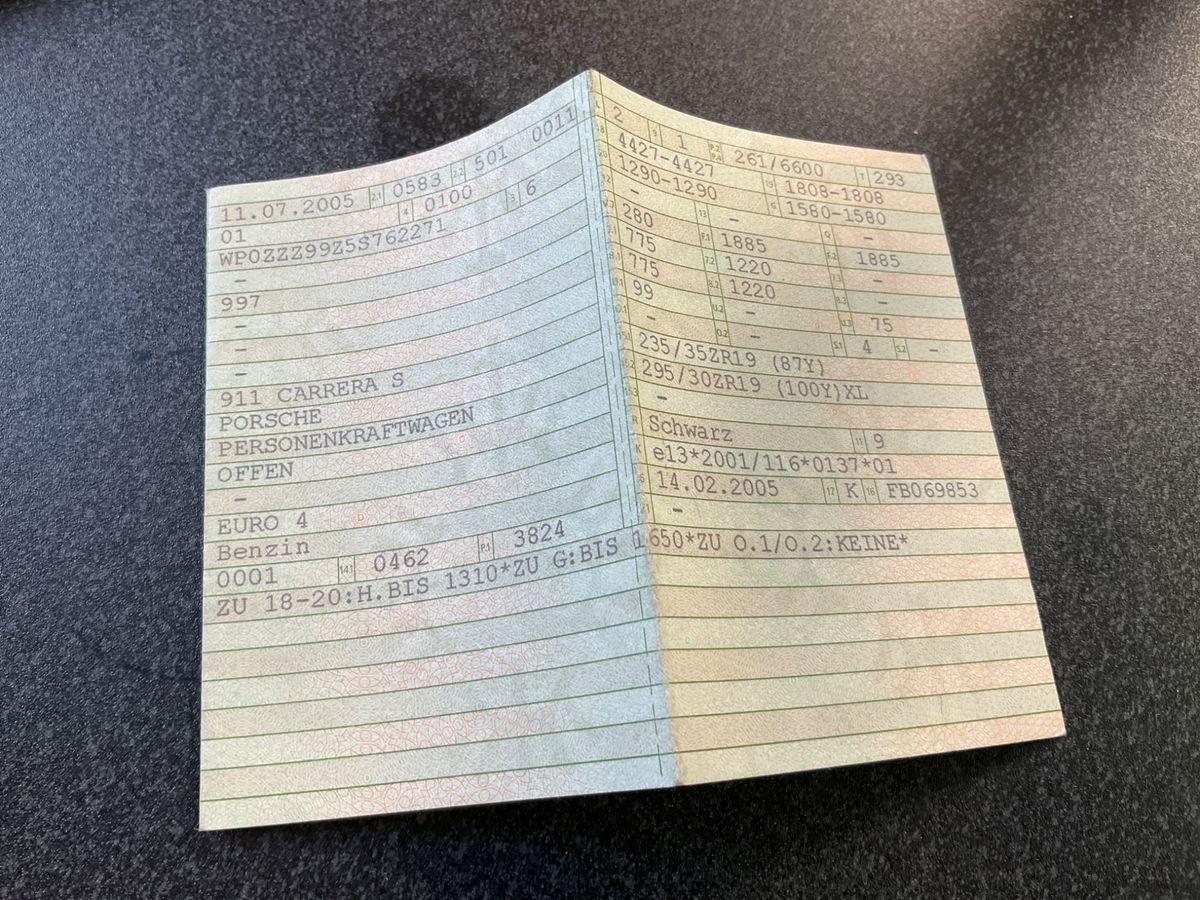 11.07.2005 2.1 0583 2.2 501 0011
01 4 0100 3 6
WP0ZZZ99Z5S762271
–
997
–
–
–
911 CARRERA S
PORSCHE
PERSONENKRAFTWAGEN
OFFEN
–
EURO 4
Benzin
0001 14.1 0462 P.1 3824
ZU 18-20:H.BIS 1310*ZU G:BIS 1650*ZU O.1/O.2:KEINE*
L 2 9 1 P.2 P.4 261/6600 T 293
18 4427-4427 19 1808-1808
20 1290-1290 G 1580-1580
12 – 13 – Q –
V.7 280 F.1 1885 F.2 1885
7.1 775 7.2 1220 7.3 –
8.1 775 8.2 1220 8.3 –
U.1 99 U.2 – U.3 75
O.1 – O.2 – S.1 4 S.2 –
15.1 235/35ZR19 (87Y)
15.2 295/30ZR19 (100Y)XL
15.3 –
R Schwarz 11 9
K e13*2001/116*0137*01
6 14.02.2005 17 K 16 FB069853
21 –